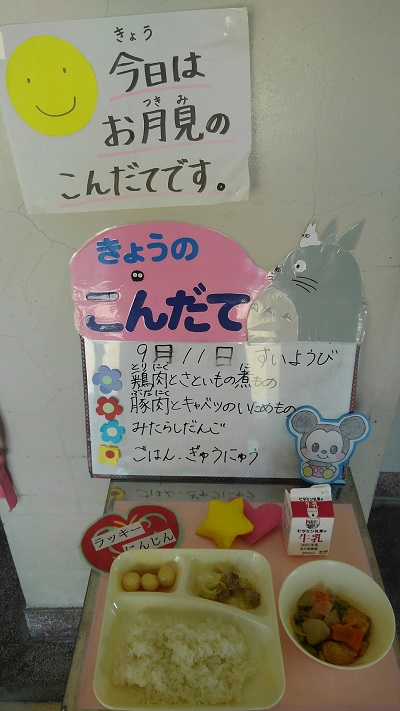 きょう
今日は
つきみ
お月見の
こんだてです。
きょうの
こんだて
9月11日 すいようび
とりにく に
鶏肉とさといもの煮もの
ぶたにく
豚肉とキャベツのいためもの
みたらしだんご
ごはん・ぎゅうにゅう
ラッキー
にんじん
牛乳